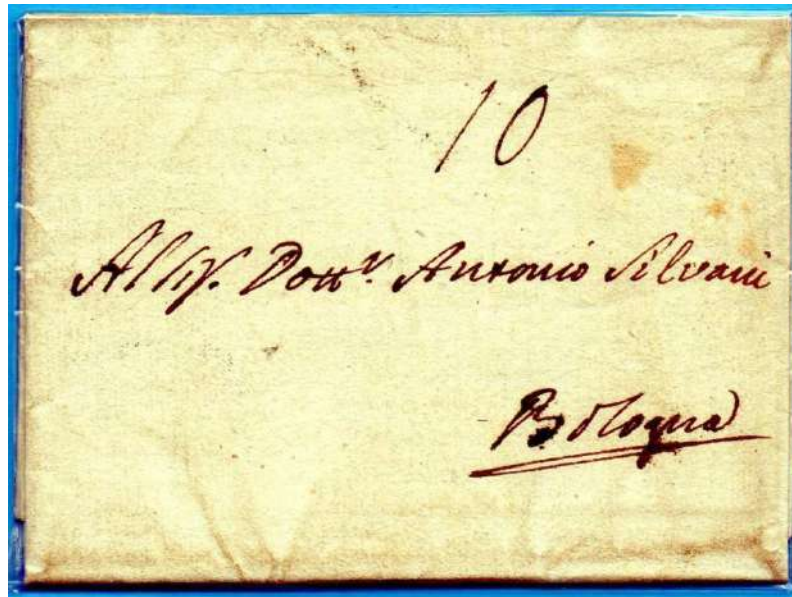 10
Al Sig. Dottr. Antonio Silvani
Bologna